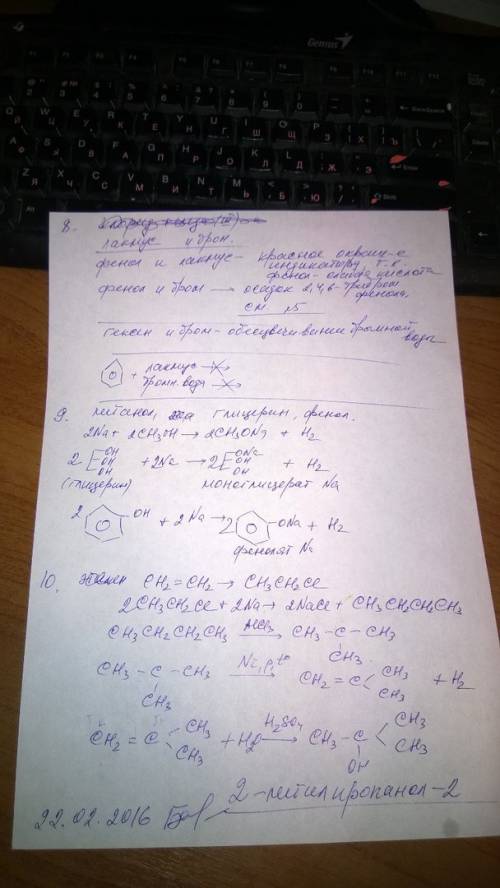 Genius
8.
лакмус и бром.
фенол и лакмус - красное окраш-е
индикатору, т.к.
фенол - слабая кислота
фенол и бром → осадок 2,4,6-трибром
фенола,
см. №5
гексен и бром - обесцвечивание бромной
воды
+ лакмус
бромн. вода
9. метанол, глицерин, фенол.
2Na + 2CH3OH → 2CH3ONa + H2
2 OH OH OH + 2Na → 2 ONa OH OH + H2
(глицерин) моноглицерат Na
2 OH + 2Na → 2 ONa + H2
фенолят Na
10. этилен CH2=CH2 → CH3CH2Cl
2CH3CH2Cl + 2Na → 2NaCl + CH3CH2CH2CH3
CH3CH2CH2CH3 AlCl3 → CH3-C-CH3
CH3
CH3-C-CH3 Ni, t° → CH2=C CH3 CH3 + H2
CH3
CH2=C CH3 CH3 + H2O H2SO4 → CH3-C CH3 CH3
OH
2-метилпропанол-2
22.02.2016